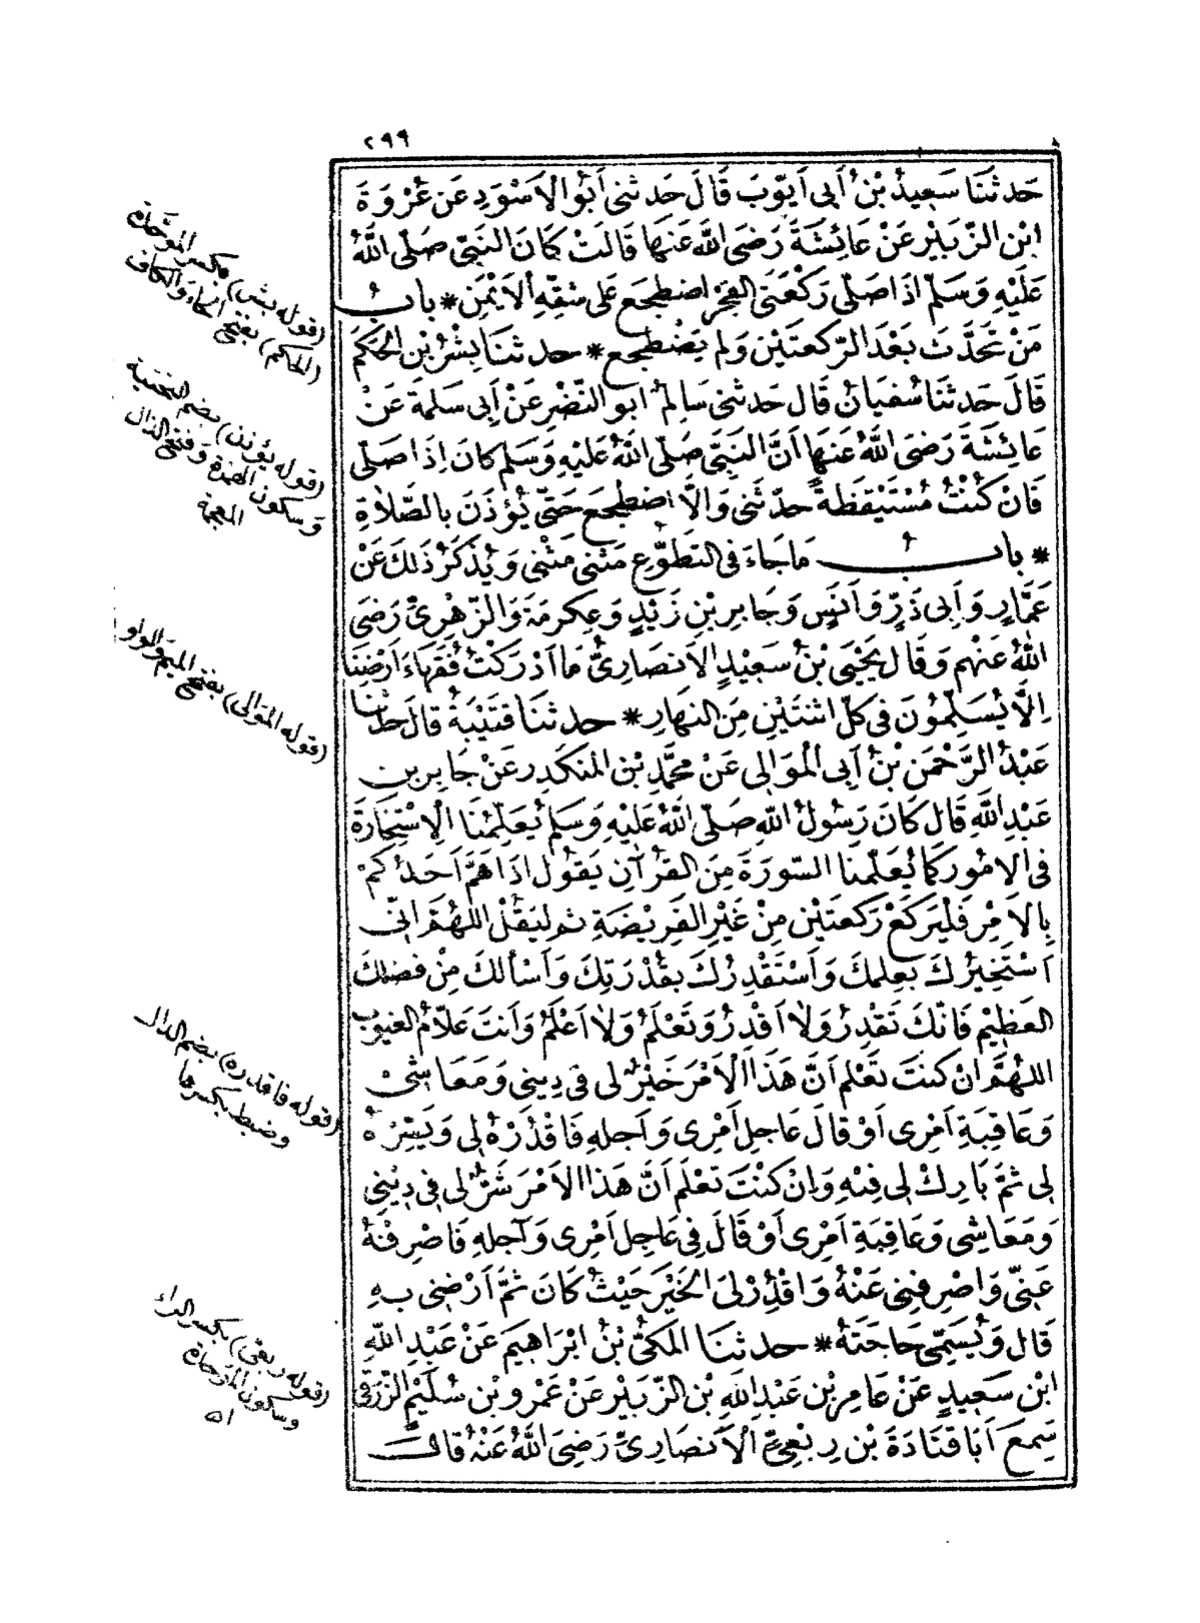 ٢٩٩
حَدثنَا سَعِيدُ بْنُ أَبِى أَيّوبَ قَالَ حَدثنى أَبُو الاَسْوَدِ عَن عُرْوَةَ
ابْنِ الزّبَيْرِ عَنْ عَائِشَةَ رَضىَ اللَّه عَنهَا قَالَتْ كَانَ النَبِىّ صَلّى اللَّهُ
عَلَيْهِ وَسَلّمَ اذَا صَلّى رَكْعَتَىِ الفَجْرِ اضطجَع عَلى شقّهِ الاَيْمَنِ * بابُ
مَنْ تَحَدَّثَ بَعْدَ الرّكعتَيْنِ وَلم يَضْطجع * حدثنَا بِشْرُ بْن الحَكَم
قَالَ حَدثنَا سُفيَانُ قَال حَدثنى سَالمُ ابو النّضْرِ عَنْ اَبى سَلَمةَ عَنْ
عَائِشَةَ رَضىَ اللَّهُ عَنهَا اَنَّ النَبِىّ صَلّى اللَّهُ عَلَيْهِ وَسَلم كانَ اِذَا صَلّى
فَانْ كُنْتُ مُسْتَيْقِظةً حدّثَنى وَالَّا اضطجَعَ حَتّى يُؤذَنَ بالصَّلَاةِ
* بابُ مَا جَاءَ فى التَطَوّعِ مَثنى مَثْنى وَيُذكَرُ ذَلكَ عَنْ
عَمَّارٍ وَاَبِى ذَرٍّ وَاَنَسٍ وَجَابِرِ بْنِ زَيْدٍ وَعِكرمَةَ وَالزّهْرِىِّ رَضىَ
اللهُ عَنْهم وَقَال يَحْيَى بْنُ سَعِيْدٍ الاَنصَارِىُّ مَا اَدْرَكْتُ فُقَهَاءَ اَرْضِنَا
اِلَّا يُسَلِّمُونَ فى كلّ اثنتَيْنِ مِنَ النهَارِ * حدثنَا قتَيْبَةُ قالَ حَدثنَا
عَبْدُ الرَّحْمَن بْنُ اَبِى الْمَوَالِى عَنْ محمَّدِ بْنِ المنكَدِر عَنْ جَابِر بن
عَبْدِ اللَّهِ قَال كَانَ رَسُولُ اللَّهِ صَلّى اللَّهُ عَلَيْهِ وَسَلم يُعَلِّمُنَا الْاِسْتِخَارَةَ
فى الامُورِ كمَا يُعَلّمنَا السّورَةَ مِنَ القُرْآنِ يَقوُل اذَا هَمَّ اَحَدُ كمْ
بِالاَمْرِ فَليَركَعْ رَكعتَيْنِ مِنْ غَيْرِ الفَرِيْضَةِ ثم ليَقُلْ اللهُمَّ انّى
اَسْتَخِيرُكَ بِعِلمكَ وَاَسْتَقْدِرُكَ بِقُدْرَتِكَ وَاَسْألكَ مِنْ فَضْلكَ
العَظِيْمِ فَانّكَ تَقْدِرُ وَلَا اَقْدِرُ وَتَعْلَمُ وَلَا اَعْلَمُ وَاَنتَ عَلَّامُ الغيُوبِ
اللهُمَّ انْ كنتَ تَعْلَم اَنَّ هَذَا الْاَمْرَ خَيْرٌ لى فى دِينِى وَمَعَاشىْ
وَعَاقِبَةِ اَمْرِى اَوْ قالَ عَاجلِ اَمْرِى وَآجلهِ فَاقْدُرْهُ لِى وَيَسِّرْهُ
لِى ثمَّ بَارِكْ لِى فيْهِ وَاِنْ كنْتَ تَعْلَم اَنَّ هَذا الاَمْرَ شَرٌّ لِى فِى دِيْنِى
وَمَعَاشِى وَعَاقِبَةِ اَمْرِى اَوْ قَالَ فِى عَاجِلِ اَمْرِى وَآجلهِ فَاصْرِفْهُ
عَنِّى وَاصْرِفنِى عَنْهُ وَاقْدُرْ لِىَ الخَيْرَ حَيْثُ كَانَ ثمَّ اَرْضِنِى بهِ
قَال وَيُسَمِّى حَاجَتَهُ * حدثنَا المَكىُّ بْنُ ابْرَاهِيمَ عَنْ عَبْدِ اللَّهِ
ابْنِ سَعِيدٍ عَنْ عَامِرِ بْنِ عَبْدِ اللَّهِ بْنِ الزّبَيْرِ عَنْ عَمْرِو بْنِ سُلَيْمٍ الزّرَقِى
سَمِعَ اَبَا قتَادَةَ بْنَ رِبْعِىٍّ الْاَنصَارِىَّ رَضِىَ اللَّهُ عَنْهُ قَالَ
(قوله بشر) بكسر الموَحّدة
(الحكم) بفتح الحاء وَالكاف
(قوله يؤذن) بضم التحتية
وَسكون الهمزة وَفتح الذال
المعجمة
(قوله الموَالى) بفتح الميم وَالواو
(قوله فاقدره) بضم الدال
وضبط بكسرها
(قوله ربعىّ) بكسر الراء
وسكون المَوَحدة
اﻫ